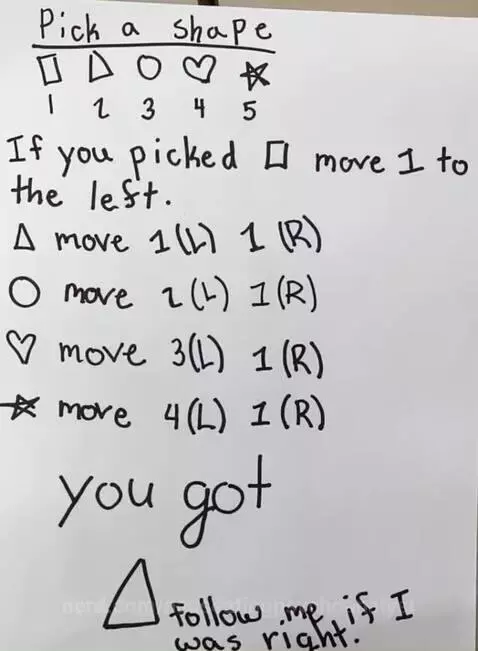 Pick a shape
1 2 3 4 5
If you picked □ move 1 to
the left.
△ move 1(L) 1(R)
○ move 2(L) 1(R)
♡ move 3(L) 1(R)
☆ move 4(L) 1(R)
you got
△ follow me if I
was right.